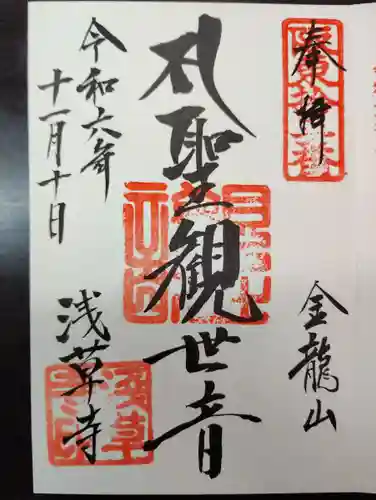 奉拝
金龍山
聖観世音
令和六年
十一月十日
浅草寺